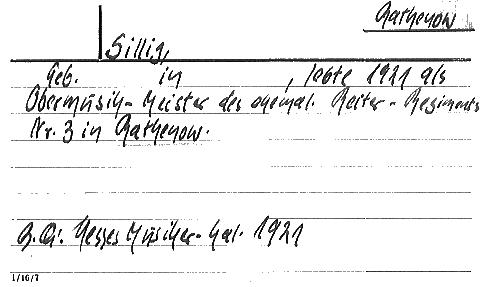 Rathenow
Sillig,
Geb. in , lebte 1921 als
Obermusik-Meister des ehemal. Reiter-Regiments
Nr. 3 in Rathenow.
Hesses Musiker-Kal. 1921
1/16/7